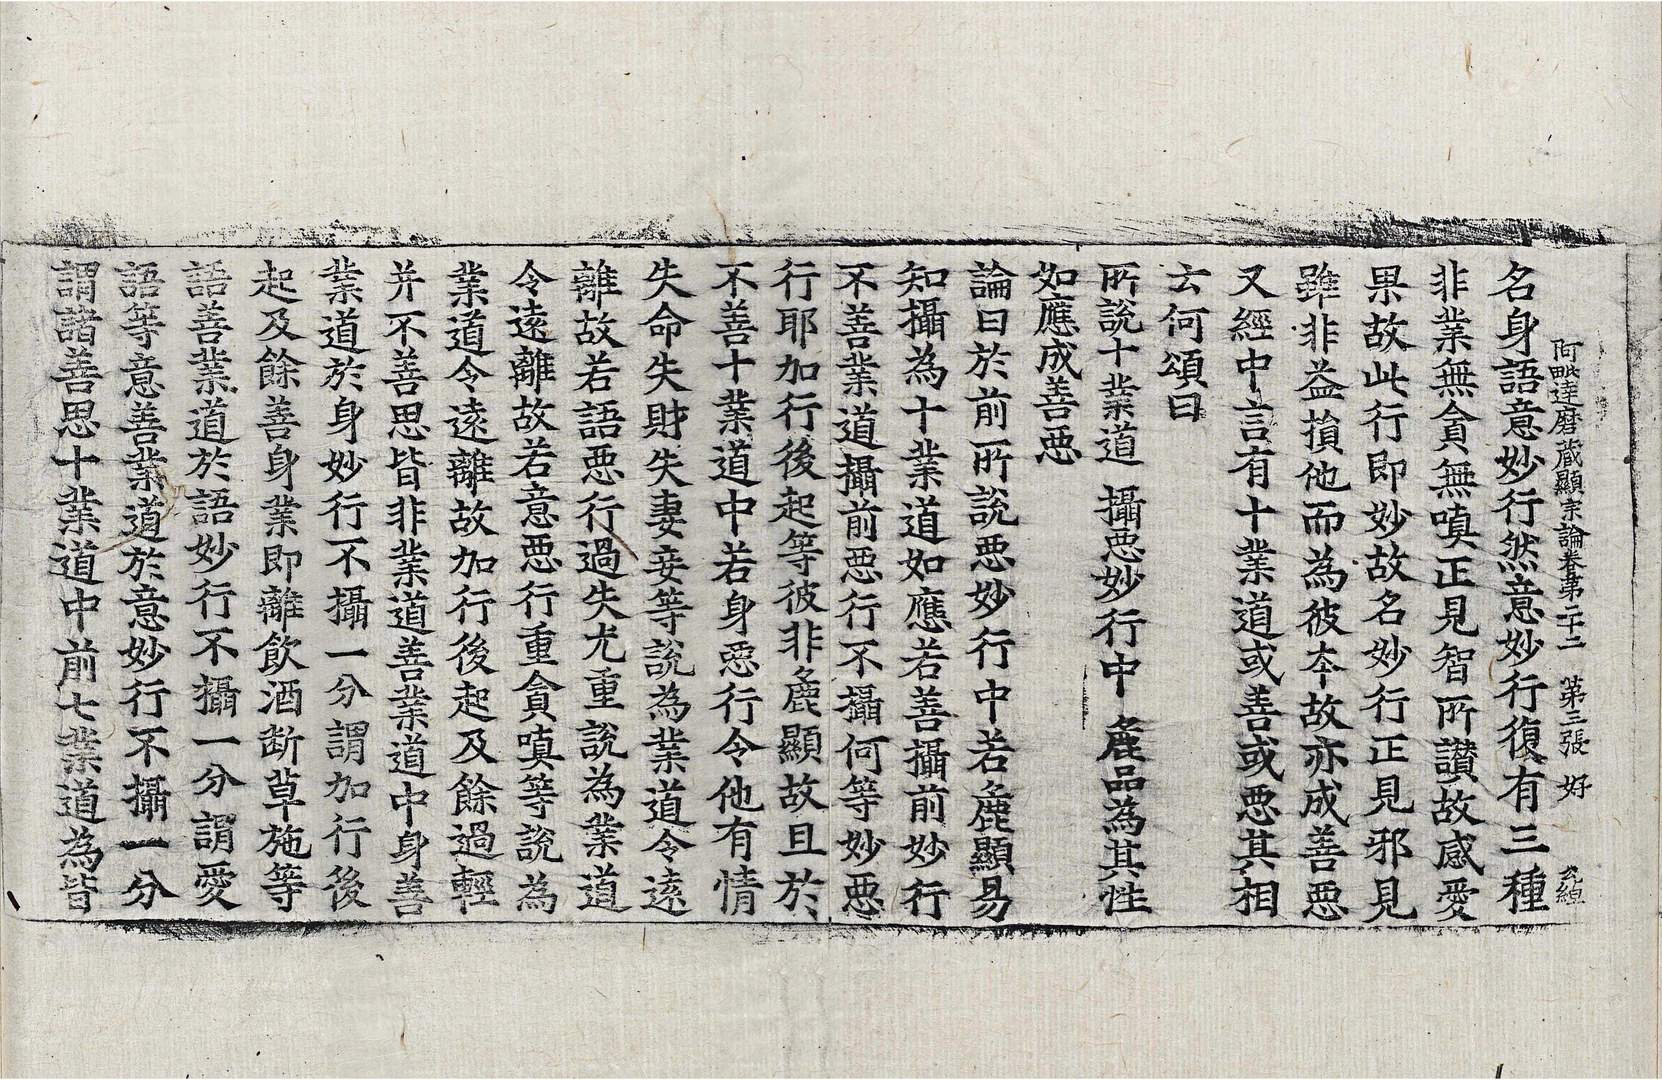 阿毗達磨藏顯宗論卷第二十二 第三張 好
名身語意妙行然意妙行復有三種
非業無貪無嗔正見智所讃故感愛
果故此行即妙故名妙行正見邪見
雖非益損他而為彼夲故亦成善惡
又經中言有十業道或善或惡其相
云何頌曰
所說十業道 攝惡妙行中 麁品為其性
如應成善惡
論曰於前所說惡妙行中若麁顯易
知攝為十業道如應若善攝前妙行
不善業道攝前惡行不攝何等妙惡
行耶加行後起等彼非麁顯故且於
不善十業道中若身惡行令他有情
失命失財失妻妾等說為業道令遠
離故若語惡行過失尤重說為業道
令遠離故若意惡行重貪嗔等說為
業道令遠離故加行後起及餘過輕
并不善思皆非業道善業道中身善
業道於身妙行不攝一分謂加行後
起及餘善身業即離飲酒断草施等
語善業道於語妙行不攝一分謂愛
語等意善業道於意妙行不攝一分
謂諸善思十業道中前七業道為皆